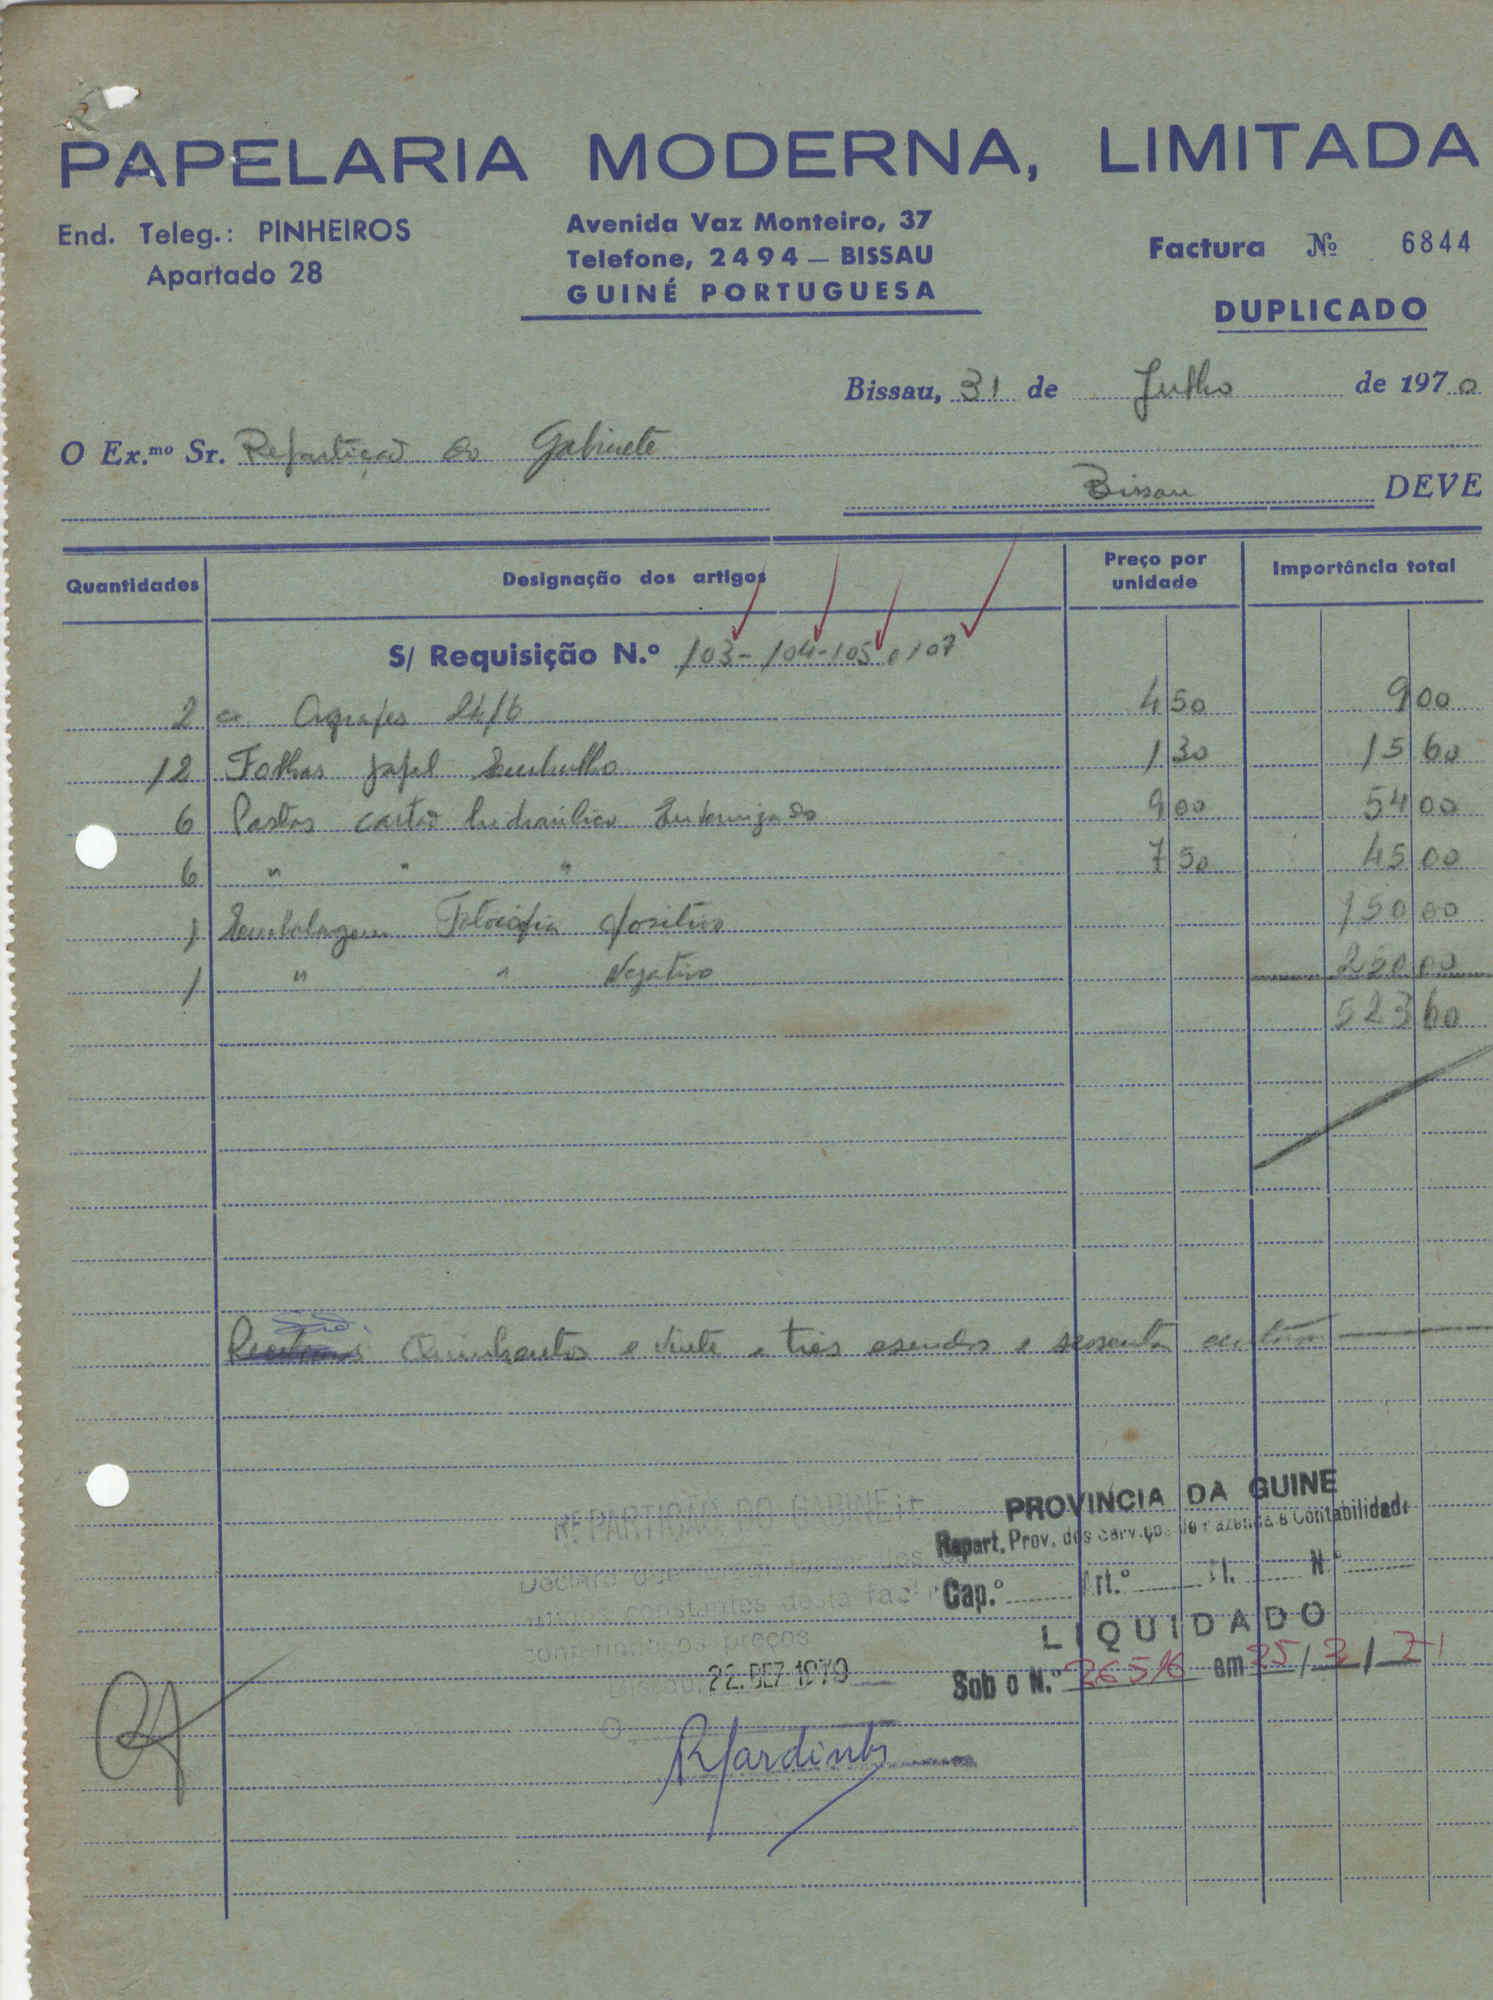 PAPELARIA MODERNA, LIMITADA
End. Teleg.: PINHEIROS
Apartado 28
Avenida Vaz Monteiro, 37
Telefone, 2494 — BISSAU
GUINÉ PORTUGUESA
Factura Nº 6844
DUPLICADO
Bissau, 31 de Julho de 1970
O Ex.mo Sr. Repartição do Gabinete
Bissau DEVE
Quantidades Designação dos artigos Preço por unidade Importância total
S/ Requisição N.º 103-104-105 e 107
2 cx Agrafes 24/6 4 50 9 00
12 Folhas papel Embrulho 1 30 15 60
6 Pastas cartão hidraulico Envernizado 9 00 54 00
6 " " " 7 50 45 00
1 Embalagem Fotocópia positivo 150 00
1 " " Negativo 250 00
523 60
São: Quinhentos e vinte e três escudos e sessenta centavos
REPARTIÇÃO DO GABINETE
Declaro que foram fornecidos os
artigos constantes desta factura
conferindo os preços
Bissau, 22. DEZ 1970
O
PROVINCIA DA GUINE
Repart. Prov. dos Serviços de Fazenda e Contabilidade
Cap.º Art.º N.º
LIQUIDADO
Sob o N.º 26516 em 25/2/71